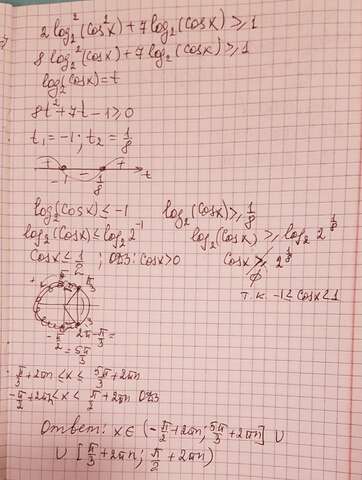 2 log₂²(cos²x) + 7 log₂(cosx) ≥ 1
8 log₂²(cosx) + 7 log₂(cosx) ≥ 1
log₂(cosx) = t
8t² + 7t - 1 ≥ 0
t₁ = -1 ; t₂ = 1/8
+ - +
-1 1/8 t
log₂(cosx) ≤ -1 log₂(cosx) ≥ 1/8
log₂(cosx) ≤ log₂2⁻¹ log₂(cosx) ≥ log₂2^(1/8)
cosx ≤ 1/2 ; ОДЗ: cosx > 0 cosx ≥ 2^(1/8)
∅
т.к. -1 ≤ cosx ≤ 1
π/2 π/3
-π/2 2π - π/3 =
= 5π/3
π/3 + 2πn ≤ x ≤ 5π/3 + 2πn
-π/2 + 2πn < x < π/2 + 2πn ОДЗ
Ответ: x ∈ (-π/2 + 2πn ; 5π/3 + 2πn] ∪
∪ [π/3 + 2πn ; π/2 + 2πn)